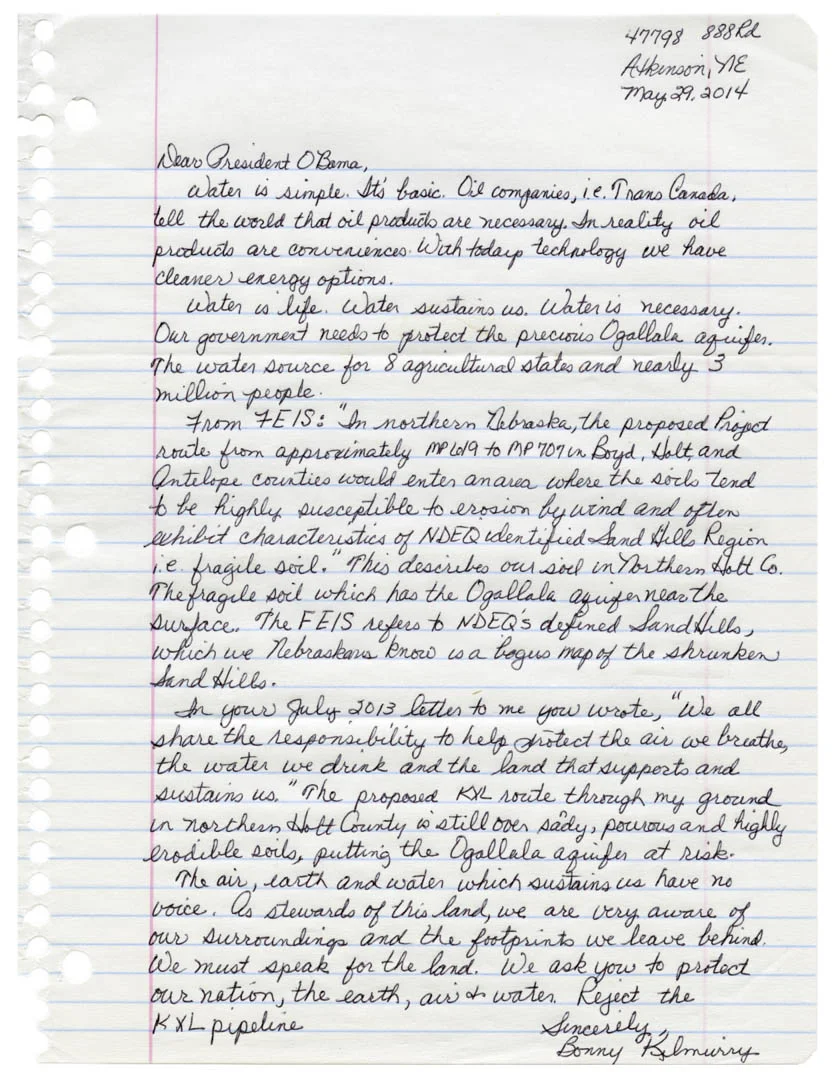 47798 888Rd
Atkinson, NE
May, 29, 2014
Dear President O'Bama,
Water is simple. It's basic. Oil companies, i.e. Trans Canada,
tell the world that oil products are necessary. In reality oil
products are conveniences. With todays technology we have
cleaner energy options.
Water is life. Water sustains us. Water is necessary.
Our government needs to protect the precious Ogallala aquifer.
The water source for 8 agricultural states and nearly 3
million people.
From FEIS: "In northern Nebraska, the proposed Project
route from approximately MP 619 to MP 707 in Boyd, Holt, and
Antelope counties would enter an area where the soils tend
to be highly susceptible to erosion by wind and often
exhibit characteristics of NDEQ identified Sand Hills Region
i.e. fragile soil." This describes our soil in Northern Holt Co.
The fragile soil which has the Ogallala aquifer near the
surface. The FEIS refers to NDEQ's defined Sand Hills,
which we Nebraskans know is a bogus map of the shrunken
Sand Hills.
In your July 2013 letter to me you wrote, "We all
share the responsibility to help protect the air we breathe,
the water we drink and the land that supports and
sustains us." The proposed KXL route through my ground
in northern Holt County is still over sady, pourous and highly
erodible soils, putting the Ogallala aquifer at risk.
The air, earth and water which sustains us have no
voice. As stewards of this land, we are very aware of
our surroundings and the footprints we leave behind.
We must speak for the land. We ask you to protect
our nation, the earth, air & water. Reject the
KXL pipeline
Sincerely,
Bonny Kilmurry